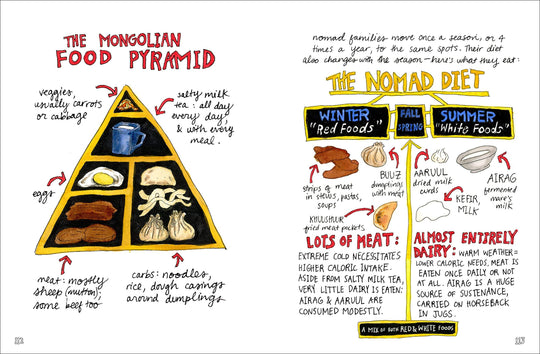 THE MONGOLIAN
FOOD PYRAMID
veggies,
usually carrots
or cabbage
salty milk
tea: all day
every day,
& with every
meal.
eggs
meat: mostly
sheep (mutton);
some beef too
carbs: noodles,
rice, dough casings
around dumplings
112
nomad families move once a season, or 4
times a year, to the same spots. Their diet
also changes with the season—here's what they eat:
THE NOMAD DIET
WINTER
"Red Foods"
FALL
SPRING
SUMMER
"White Foods"
strips of meat
in stews, pastas,
soups
BUUZ
dumplings
with meat
KHUUSHUUR
fried meat pockets
AARUUL
dried milk
curds
KEFIR,
MILK
AIRAG
fermented
mare's
milk
LOTS OF MEAT:
EXTREME COLD NECESSITATES
HIGHER CALORIC INTAKE.
ASIDE FROM SALTY MILK TEA,
VERY LITTLE DAIRY IS EATEN:
AIRAG & AARUUL ARE
CONSUMED MODESTLY.
ALMOST ENTIRELY
DAIRY: WARM WEATHER=
LOWER CALORIC NEEDS. MEAT IS
EATEN ONCE DAILY OR NOT
AT ALL. AIRAG IS A HUGE
SOURCE OF SUSTENANCE,
CARRIED ON HORSEBACK
IN JUGS.
A MIX OF BOTH RED & WHITE FOODS